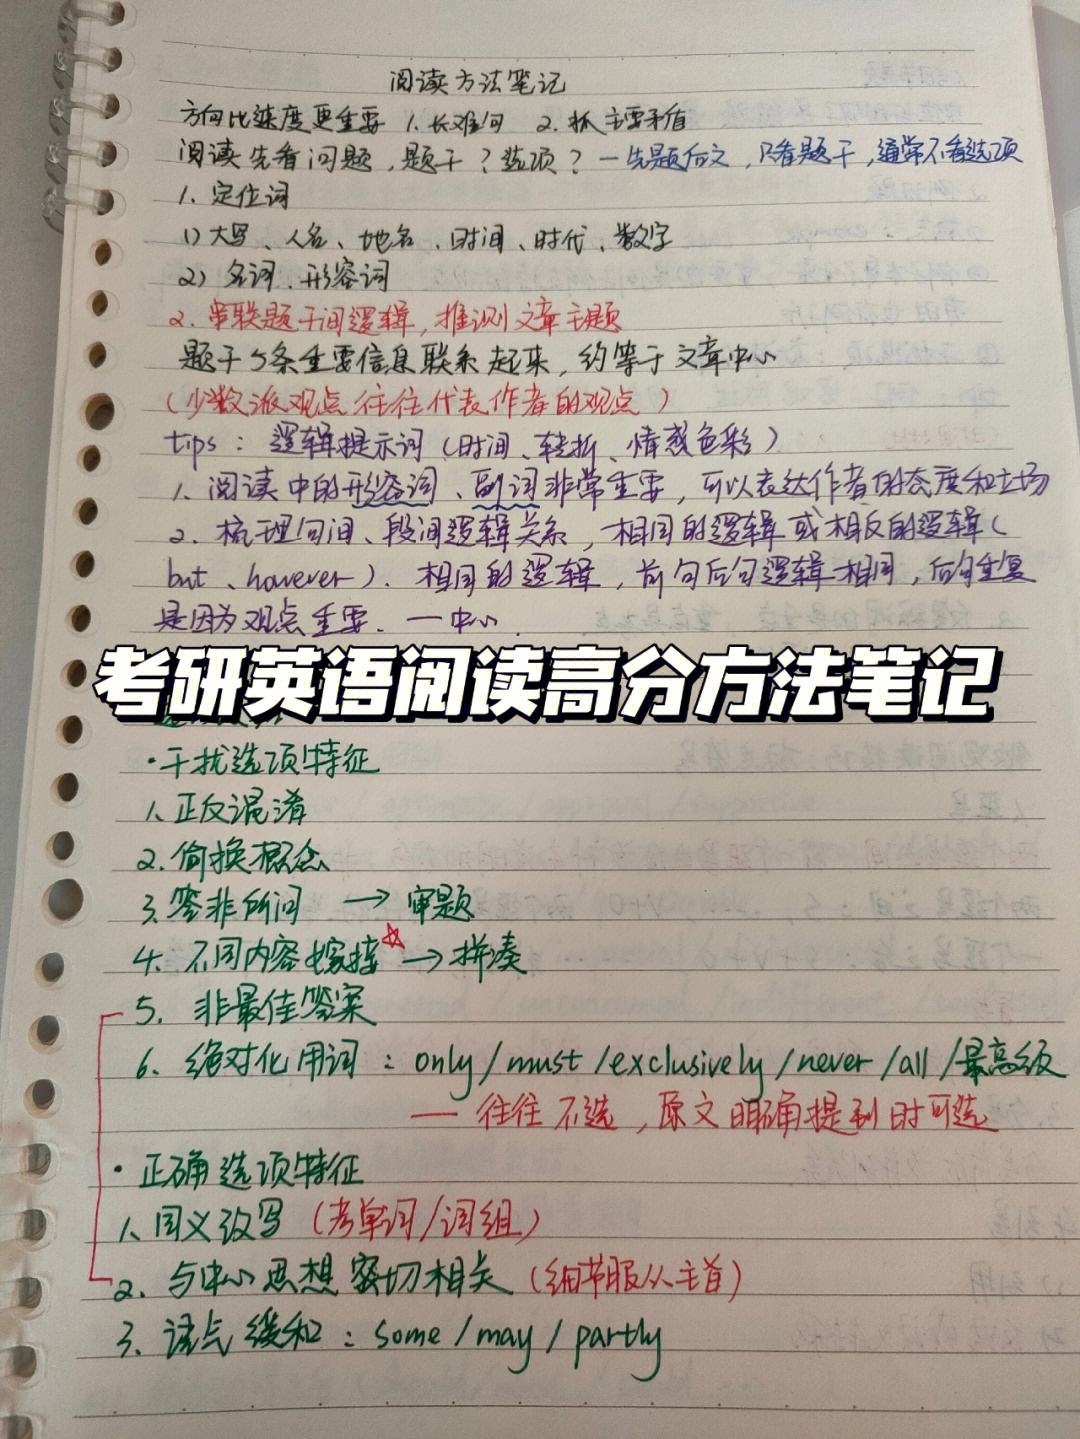 阅读方法笔记
方向比速度更重要 1.长难句 2.抓主要矛盾
阅读先看问题,题干?选项?—先题后文,只看题干,通常不看选项
1.定位词
1)大写、人名、地名、时间、时代、数字
2)名词、形容词
2.串联题干间逻辑,推测文章主题
题干5条重要信息联系起来,约等于文章中心
(少数派观点往往代表作者的观点)
tips:逻辑提示词(时间、转折、情感色彩)
1.阅读中的形容词、副词非常重要,可以表达作者的态度和立场
2.梳理句间、段间逻辑关系,相同的逻辑或相反的逻辑(
but、however).相同的逻辑,前句后句逻辑相同,后句重复
是因为观点重要.—中心.
考研英语阅读高分方法笔记
·干扰选项特征
1.正反混淆
2.偷换概念
3.答非所问 → 审题
4.不同内容嫁接☆→拼凑
5.非最佳答案
6.绝对化用词:only/must/exclusively/never/all/最高级
—往往不选,原文明确提到时可选
·正确选项特征
1.同义改写(考单词/词组)
2.与中心思想密切相关(细节服从主旨)
3.语气缓和:some/may/partly